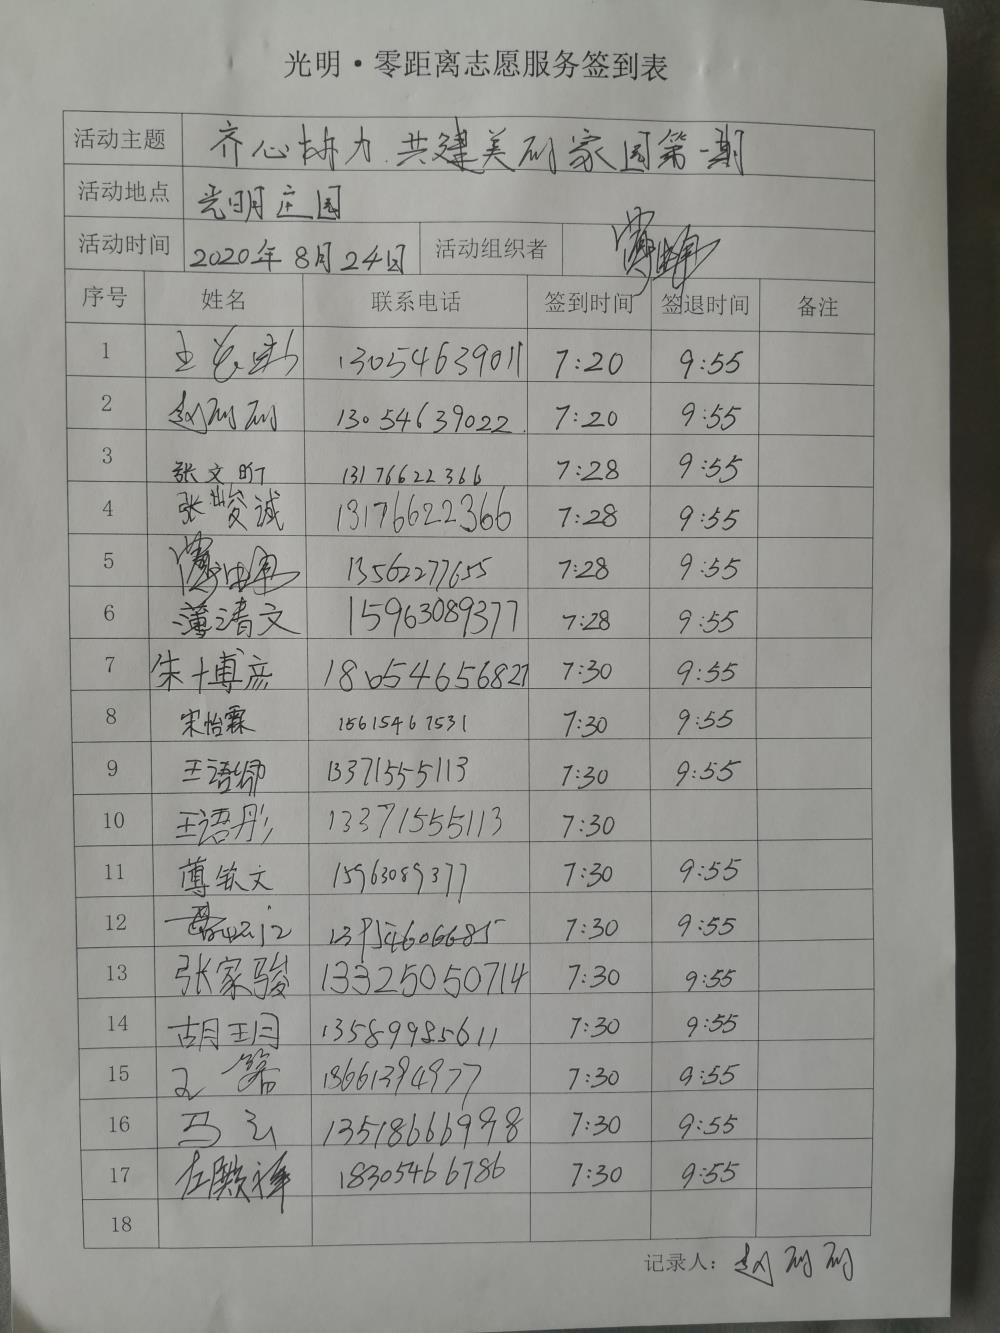 光明·零距离志愿服务签到表
活动主题 齐心协力.共建美丽家园第一期
活动地点 光明庄园
活动时间 2020年8月24日 活动组织者
序号 姓名 联系电话 签到时间 签退时间 备注
1 13054639011 7:20 9:55
2 赵丽丽 13054639022 7:20 9:55
3 张文 13176622366 7:28 9:55
4 张峻诚 13176622366 7:28 9:55
5 13562277655 7:28 9:55
6 薄清文 15963089377 7:28 9:55
7 朱博彦 18654656827 7:30 9:55
8 宋怡霖 15615467531 7:30 9:55
9 王语 13371555113 7:30 9:55
10 王语彤 13371555113 7:30
11 薄钦文 15963089377 7:30 9:55
12 13954606685 7:30 9:55
13 张家骏 13325050714 7:30 9:55
14 胡玥 13589985611 7:30 9:55
15 13661394977 7:30 9:55
16 马 13518666998 7:30 9:55
17 18305466786 7:30 9:55
18
记录人：赵丽丽